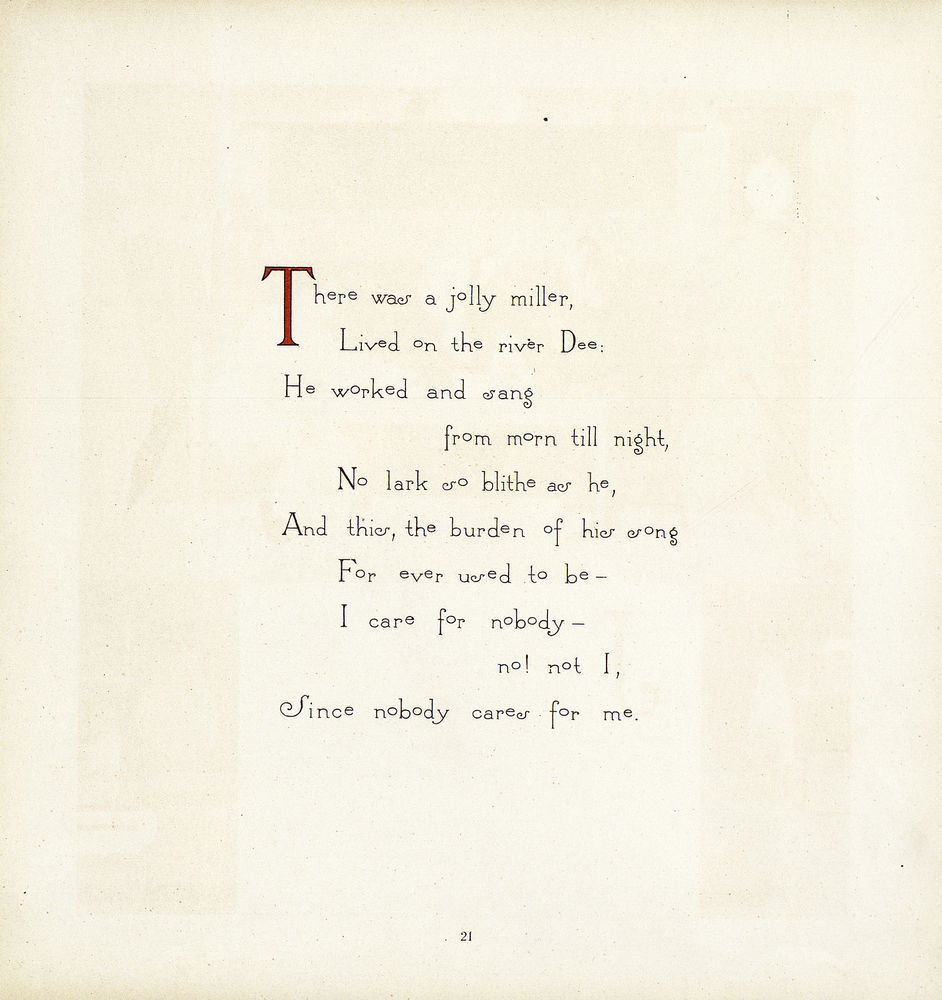 There was a jolly miller,
Lived on the river Dee:
He worked and sang
from morn till night,
No lark so blithe as he,
And this, the burden of his song
For ever used to be –
I care for nobody –
no! not I,
Since nobody cares for me.
21